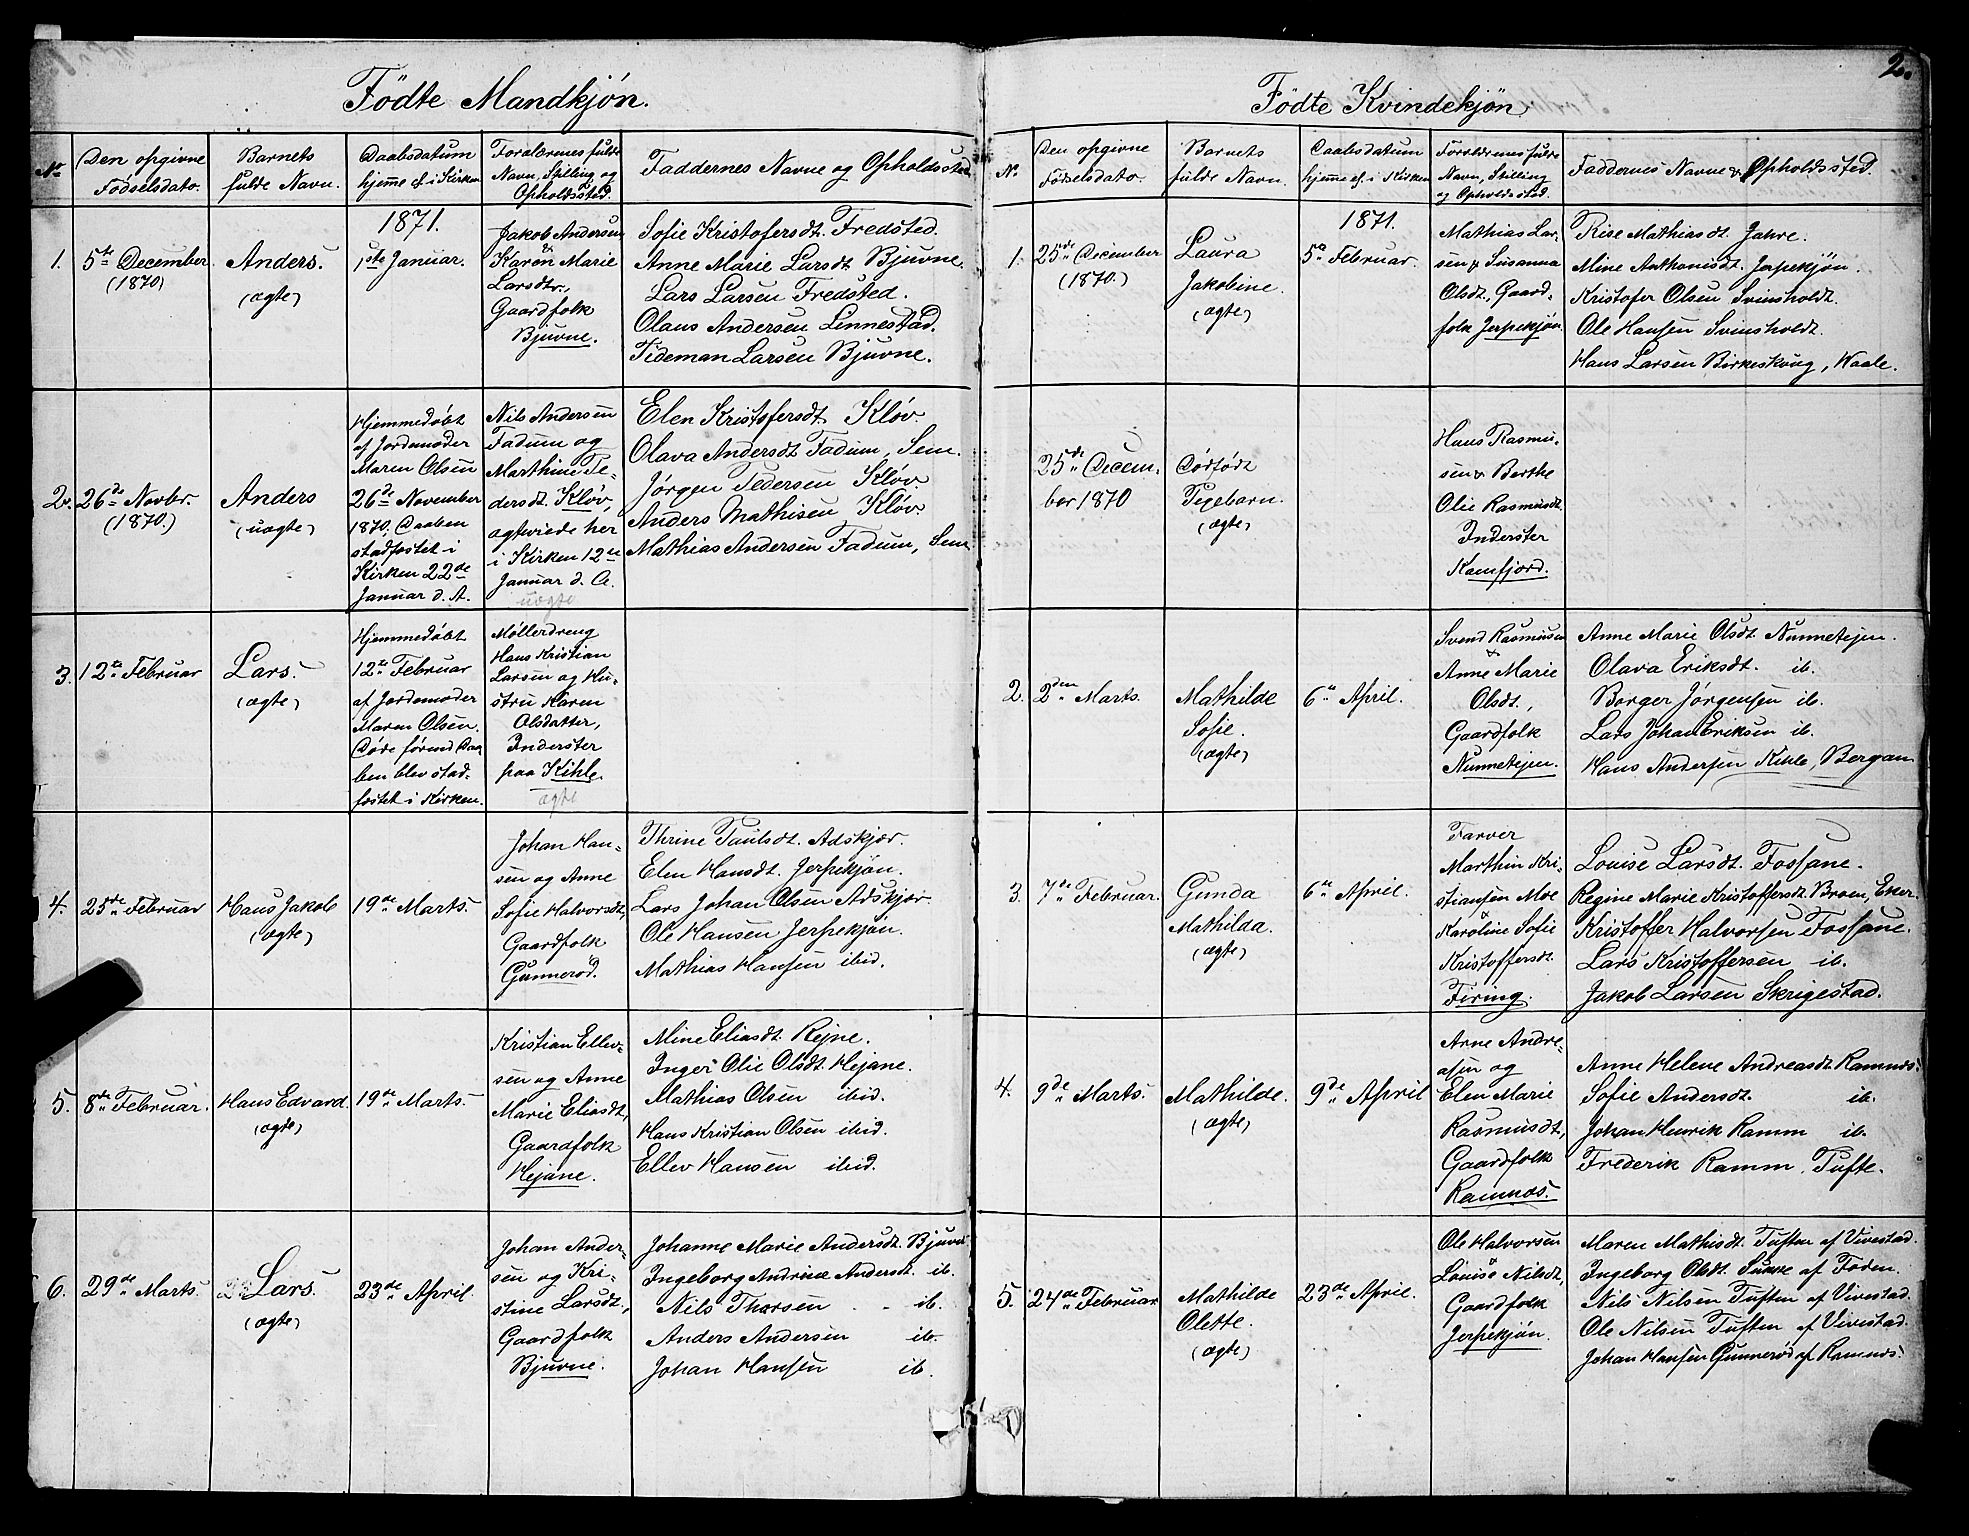 2.
Födte Mandkjön.
No
Den opgivne
Födselsdato.
Barnets
fulde Navn.
Daabsdatum
hjemme el. i Kirken
Foraldrenes fulde
Navn, Stilling og
Opholdssted.
Faddernes Navne og Opholdssted
1.
5te December
(1870)
Anders.
(ægte)
1871.
1ste Januar.
Jakob Andersen
&
Karen Marie
Larsdtr.,
Gaardfolk
Bjuvne.
Sofie Kristofersdt. Fredsted.
Anne Marie Larsdt Bjuvne.
Lars Larsen Fredsted.
Olaus Andersen Linnestad.
Tideman Larsen Bjuvne.
2.
26de Novbr.
(1870.)
Anders
(uægte)
Hjemmedøbt
af Jordemoder
Maren Olsen
26de November
1870, Daaben
stadfæstet i
Kirken 22de
Januar d. A.
Nils Andersen
Fadum og
Marthine Te-
dersdt. Kløv,
ægteviede her
i Kirken 12te
Januar d. A.
uægte
Elen Kristofersdt. Kløv.
Olava Andersdt Fadum, Sem.
Jörgen Tedersen Kløv.
Anders Mathisen Kløv.
Mathias Andersen Fadum, Sem
3.
12te Februar
Lars.
(ægte)
Hjemmedøbt
12te Februar
af Jordemoder
Maren Olsen.
Døde förend Daa-
ben blev stad-
fæstet i Kirken.
Møllerdreng
Hans Kristian
Larsen og Hu-
stru Karen
Olsdatter,
Inderster
paa Kihle.
ægte
4.
25de Februar
Hans Jakob
(ægte)
19de Marts.
Johan Han-
sen og Anne
Sofie Halvorsdt,
Gaardfolk
Gunnerød.
Thrine Paulsdt. Adskjær.
Elen Hansdt. Jerpekjøn.
Lars Johan Olsen Adskjær.
Ole Hansen Jerpekjøn.
Mathias Hansen ibid.
5.
8de Februar.
Hans Edvard.
(ægte)
19de Marts.
Kristian Ellev-
sen og Anne
Marie Eliasdt,
Gaardfolk
Hejane.
Mine Eliasdt. Rejne.
Inger Olie Olsdt. Hejane.
Mathias Olsen ibid.
Hans Kristian Olsen ibid.
Ellev Hansen ibid.
6.
29de Marts.
Lars.
(ægte)
23de April
Johan Ander-
sen og Kri-
stine Larsdt,
Gaardfolk
Bjuvne.
Johanne Marie Andersdt. Bjuvne
Ingeborg Andrine Andersdt. ib.
Nils Thorsen - ib.
Anders Andersen ib.
Johan Hansen ib.
Födte Kvindekjön
No.
Den opgivne
Födselsdato.
Barnets
fulde Navn.
Daabsdatum
hjemme el. i Kirken
Foraldrenes fulde
Navn, Stilling
og Opholdssted.
Faddernes Navne & Opholdssted.
1.
25de December
(1870.)
Laura
Jakobine.
(ægte)
1871.
5te Februar.
Mathias Lar-
sen & Susanna
Olsdt, Gaard-
folk Jerpekjøn
Rise Mathiasdt. Jahre.
Mine Anthonisdt. Jerpekjøn.
Kristofer Olsen Svinsholdt.
Ole Hansen Svinsholdt.
Hans Larsen Birkeskoug, Waale.
25de Decem-
ber 1870
Dødfødt
Pigebarn.
(ægte)
Hans Rasmu-
sen & Berthe
Olie Rasmusdt.
Inderster
Kamfjord.
2.
2den Marts.
Mathilde
Sofie.
(ægte)
6te April.
Svend Rasmusen
&
Anne Marie
Olsdt.,
Gaardfolk
Nunnetejen.
Anne Marie Olsdt Nunnetejen.
Olava Eriksdt. ib.
Borger Jørgensen ib.
Lars Johan Eriksen ib.
Hans Andersen Kihle, Bergan
3.
7de Februar.
Gunda
Mathilda.
(ægte)
6te April.
Farver
Marthin Kri-
stiansen Moe
&
Karoline Sofie
Kristoffersdt.
Firing.
Louise Larsdt. Fossane.
Regine Marie Kristoffersdt. Broen, Eker.
Kristoffer Halvorsen Fossane.
Lars Kristoffersen ib.
Jakob Larsen Skrigestad.
4.
9de Marts.
Mathilde.
(ægte)
9de April
Arne Andre-
asen og
Elen Marie
Rasmusdt,
Gaardfolk
Ramnæs.
Anne Helene Andreasdt Ramnæs.
Sofie Andersdt. ib.
Johan Henrik Ramm ib.
Frederik Ramm, Tufte.
5.
24de Februar
Mathilde
Olette.
(ægte)
23de April.
Ole Halvorsen
&
Louise Nilsdt,
Gaardfolk
Jerpekjøn.
Maren Mathisdt. Tuften af Vivestad.
Ingeborg Olsdt. af Foden.
Nils Nilsen Tuften af Vivestad.
Ole Nilsen Tuften af Vivestad.
Johan Hansen Gunnerød af Ramnæs.